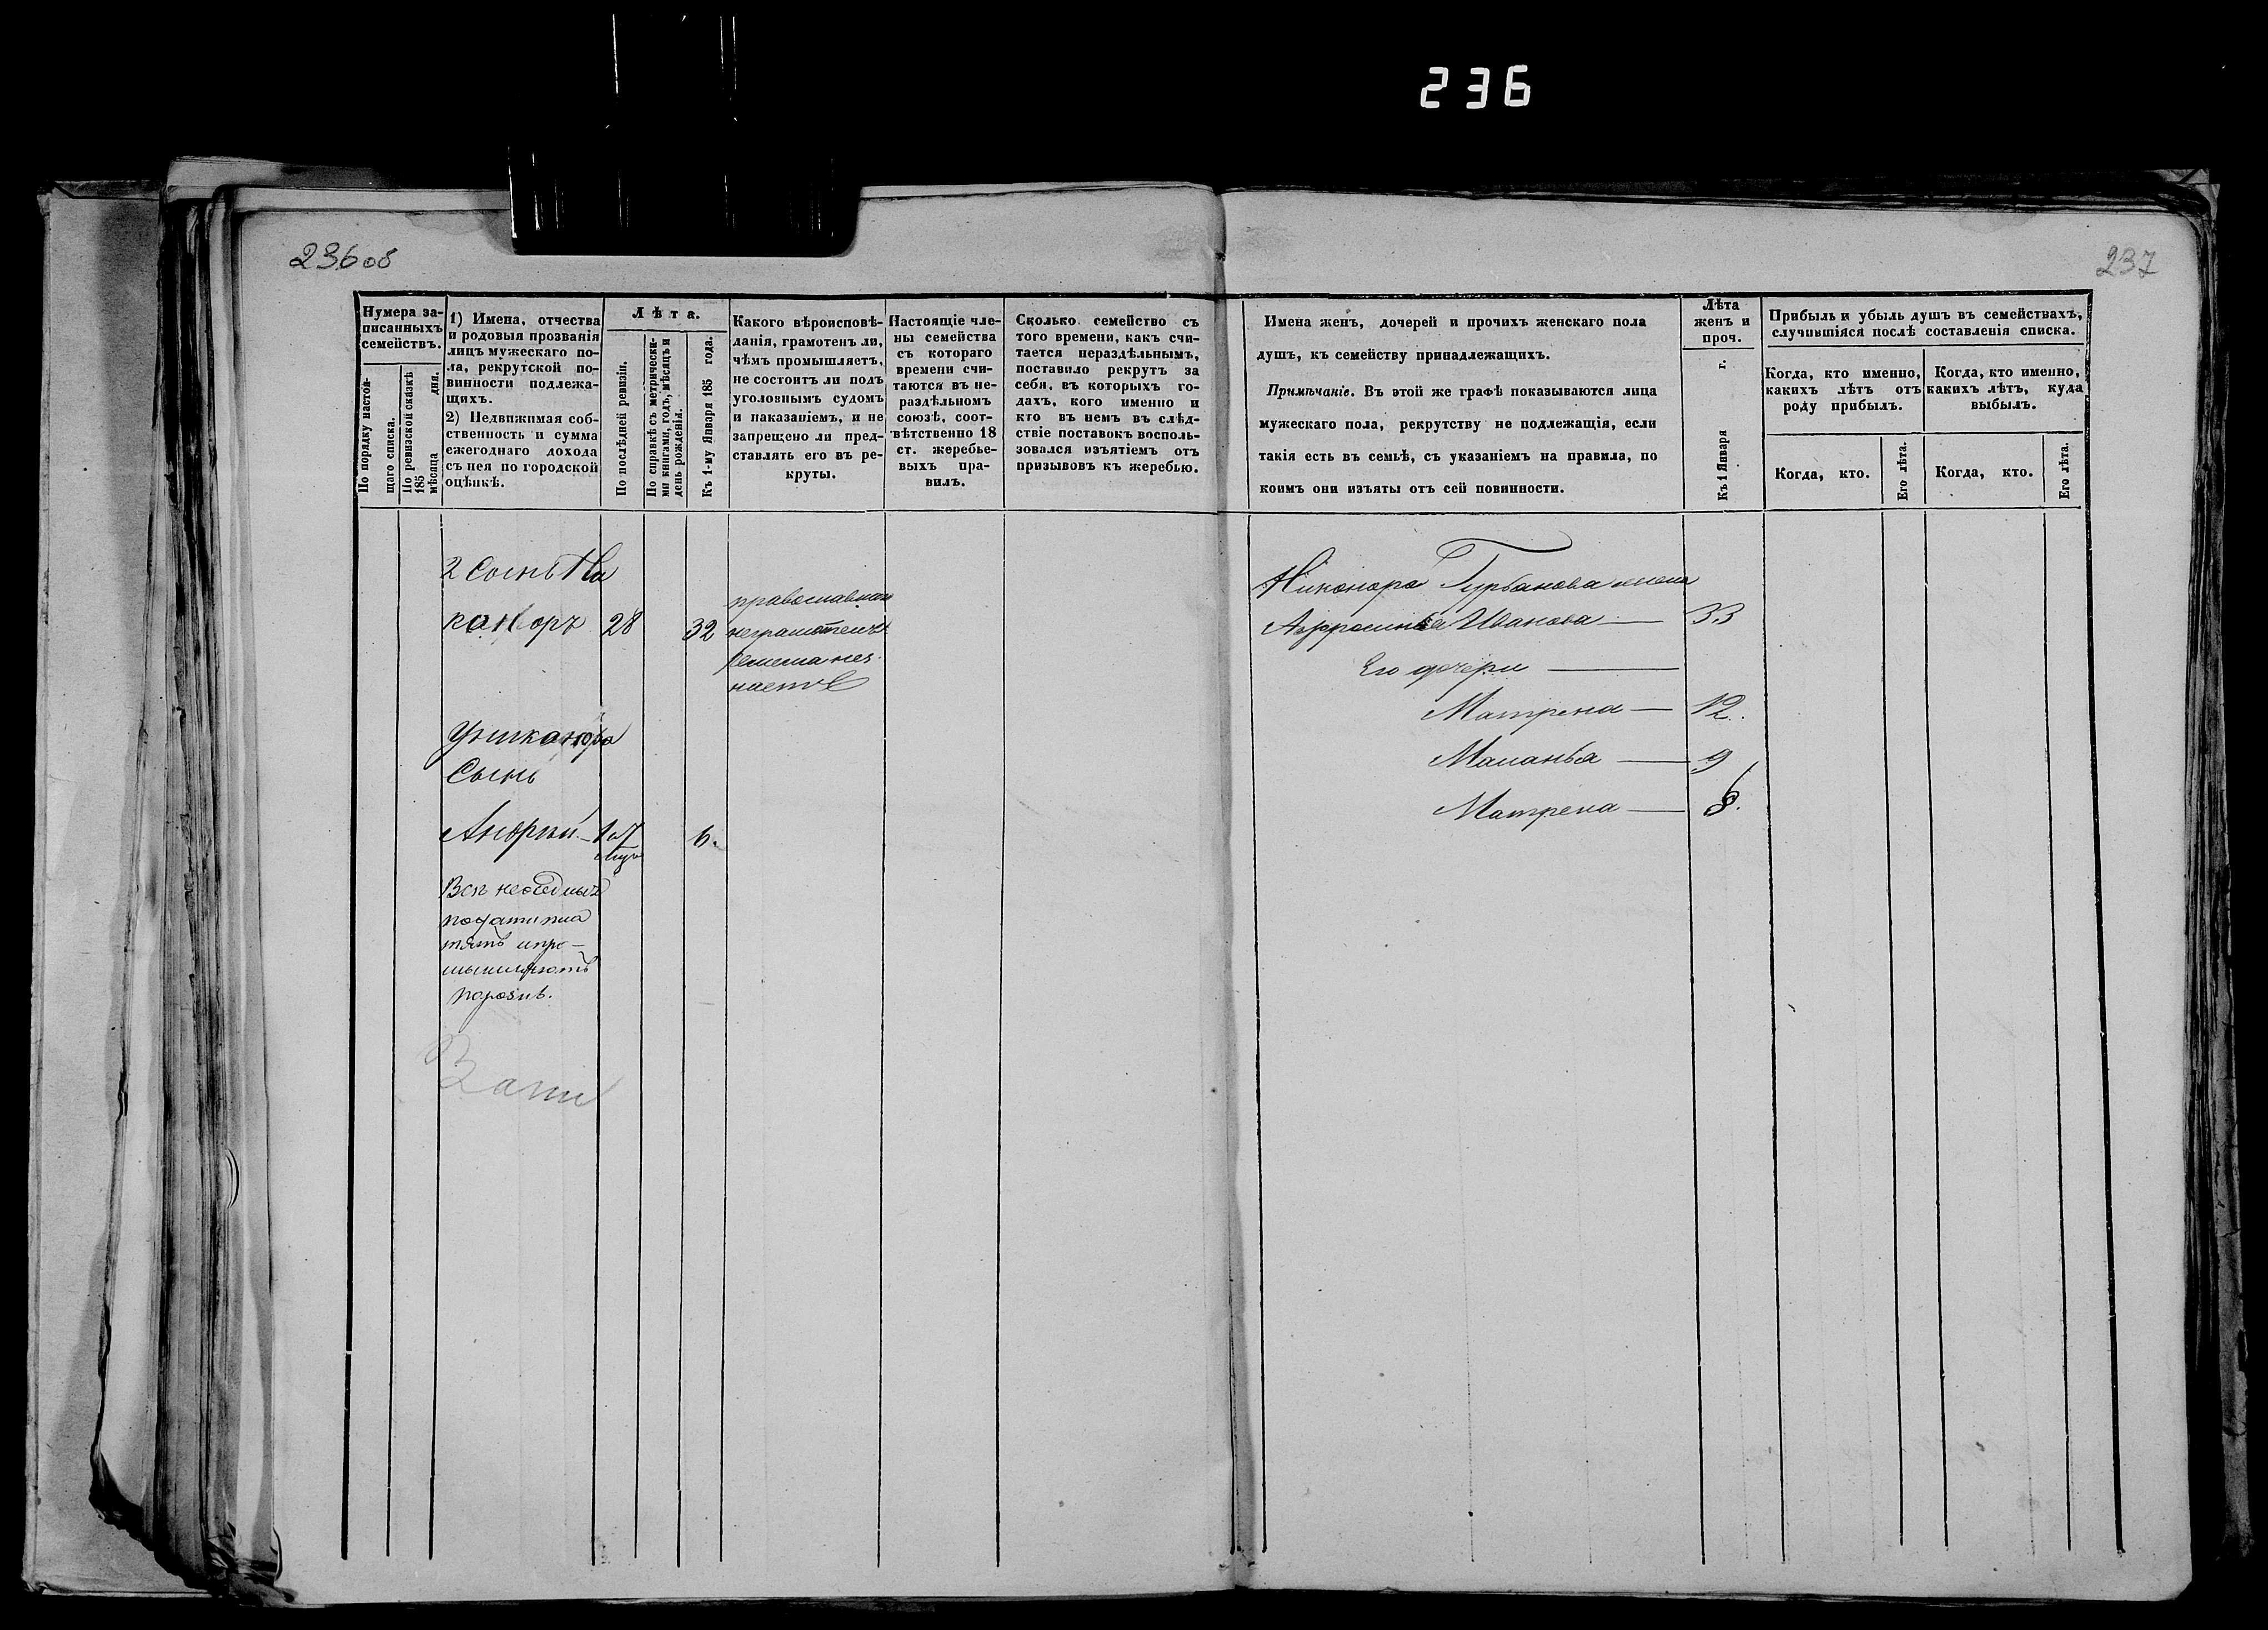 236
236 об
237
Нумера за-
писанныхъ
семействъ.
По порядку настоя-
щаго списка.
По ревизской сказкѣ
185 мѣсяца дня.
1) Имена, отчества
и родовыя прозванія
лицъ мужескаго по-
ла, рекрутской по-
винности подлежа-
щихъ.
2) Недвижимая соб-
ственность и сумма
ежегоднаго дохода
съ нея по городской
оцѣнкѣ.
Лѣта.
По послѣдней ревизіи.
По справкѣ съ метрически-
ми книгами, годъ, мѣсяцъ и
день рожденія.
Къ 1-му Января 185 года.
Какого вѣроисповѣ-
данія, грамотенъ ли,
чѣмъ промышляетъ,
не состоитъ ли подъ
уголовнымъ судомъ
и наказаніемъ, и не
запрещено ли пред-
ставлять его въ ре-
круты.
Настоящіе чле-
ны семейства
съ котораго
времени счи-
таются въ не-
раздѣльномъ
союзѣ, соот-
вѣтственно 18
ст. жеребье-
выхъ пра-
вилъ.
Сколько семейство съ
того времени, какъ счи-
тается нераздѣльнымъ,
поставило рекрутъ за
себя, въ которыхъ го-
дахъ, кого именно и
кто въ немъ въ слѣд-
ствіе поставокъ восполь-
зовался изъятіемъ отъ
призывовъ къ жеребью.
Имена женъ, дочерей и прочихъ женскаго пола
душъ, къ семейству принадлежащихъ.
Примѣчаніе. Въ этой же графѣ показываются лица
мужескаго пола, рекрутству не подлежащія, если
такія есть въ семьѣ, съ указаніемъ на правила, по
коимъ они изъяты отъ сей повинности.
Лѣта
женъ и
проч.
Къ 1 Января г.
Прибыль и убыль душъ въ семействахъ,
случившіяся послѣ составленія списка.
Когда, кто именно,
какихъ лѣтъ отъ
роду прибылъ.
Когда, кто именно,
какихъ лѣтъ, куда
выбылъ.
Когда, кто.
Его лѣта.
Когда, кто.
Его лѣта.
2 Сынъ Ни
каноръ 28 32
православнаго
неграмотенъ
ремесла нез
наетъ
У Никанора
Сынъ
Андрей 6.
подати пла
тятъ и про-
мышляютъ
Никонора Гурьянова жена
Афросинья Иванова — 33
Его дочери —
Матрена — 12.
Маланья — 9
Матрена —